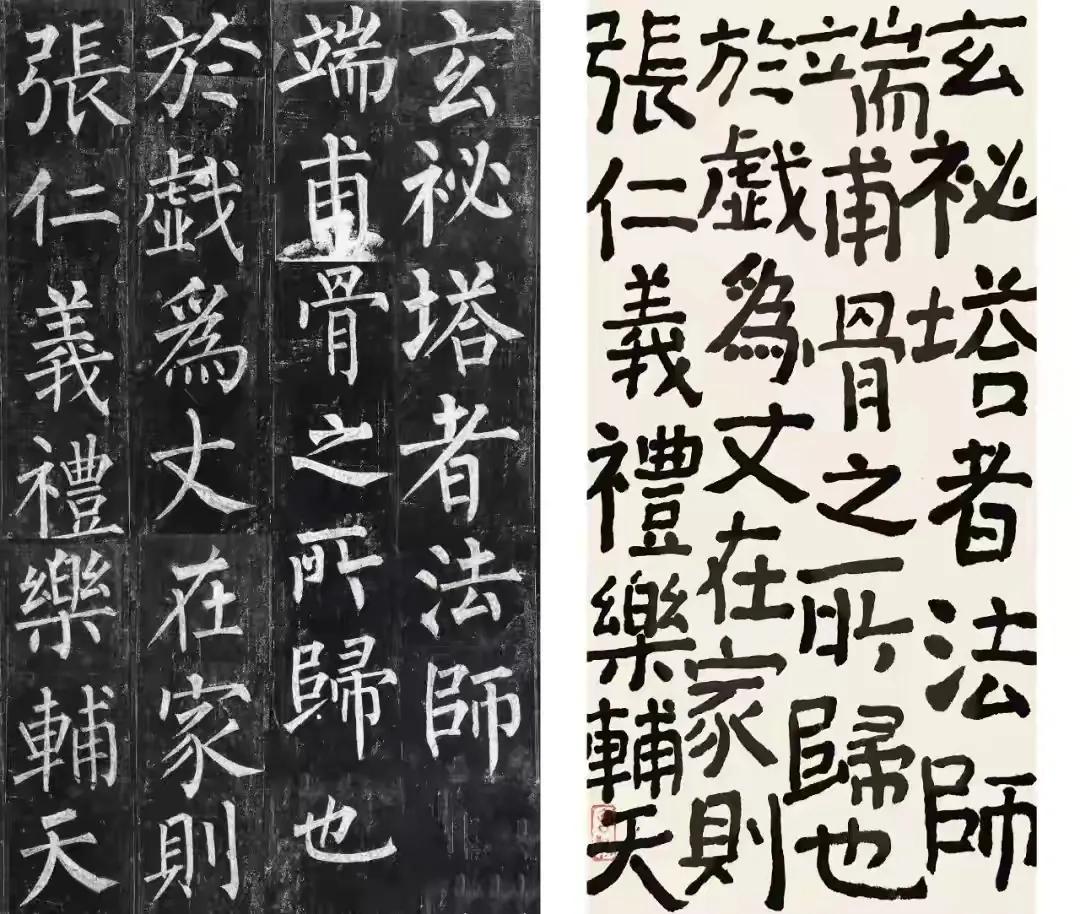 玄祕塔者法師
端甫骨之所歸也
於戲爲丈在家則
張仁義禮樂輔天
玄祕塔者法師
端甫骨之所歸也
於戲爲丈在家則
張仁義禮樂輔天